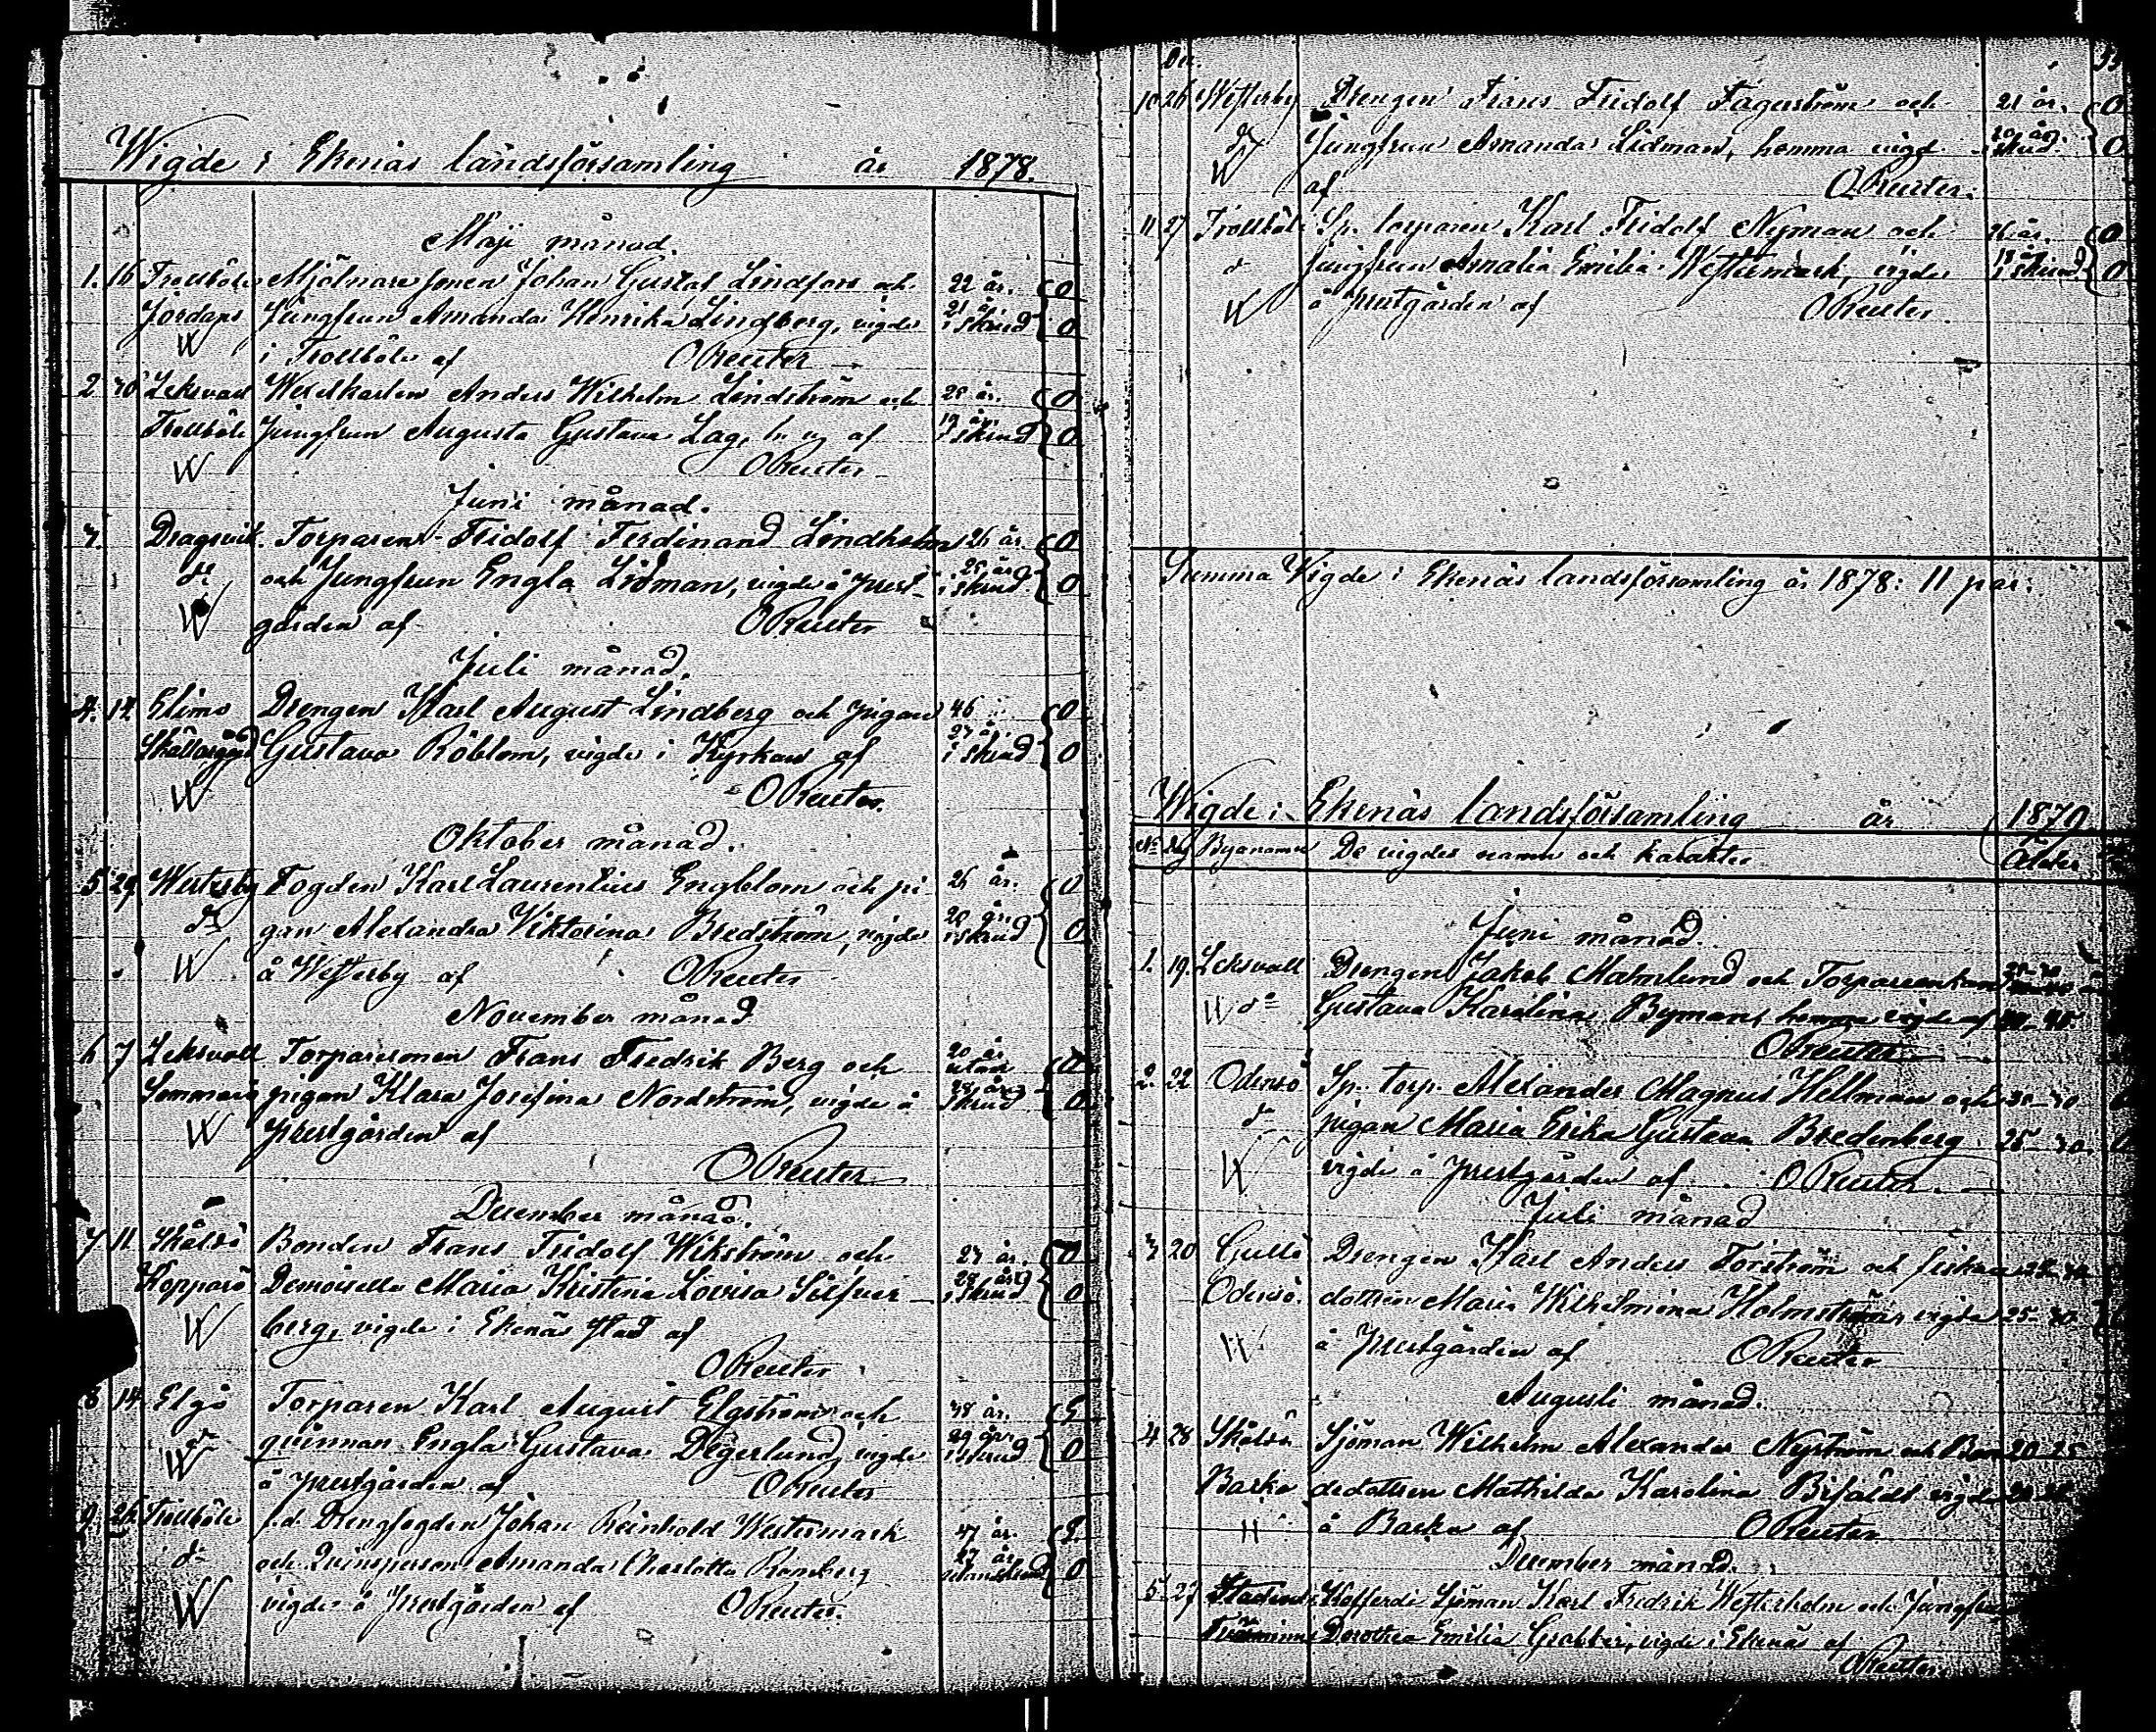 Wigde i Ekenäs landsförsamling år 1878.
Maji månad.
1. 16 Trollböle Mjölnaresonen Johan Gustaf Lindfors och 22 år. 0
Jordans Jungfrun Amanda Henrika Lindberg, vigde 21 år i skrud 0
W i Trollböle af OReuter
2 30 Leksvall Werelkarlen Anders Wilhelm Lindström och 28 år. 0
Trollböle Jungfrun Augusta Gustava Lag, af 19 år i skrud 0
W OReuter
Juni månad.
Dragsvik Torparen Fridolf Ferdinand Lindholm 26 år. 0
d:o och Jungfrun Engla Lidman, vigde å prest- 25 år i skrud 0
W gården af OReuter
Juli månad.
4. Elimo Drengen Karl August Lindberg och pigan 46 0
Gustava Röblom, vigde i Kyrkan af i skrud 0
W OReuter.
Oktober månad.
5 29 Westerby Fogden Karl Laurentius Engblom och pi 0
d:o gan Alexandra Viktorina Bredström, vigde 20 år. i skrud 0
W å Westerby af OReuter
November månad
6 7 Leksvall Torparesonen Frans Fredrik Berg och 20 år utom 0
pigan Klara Josefina Nordström, vigde å skrud 0
W prestgården af
OReuter
December månad.
7 11. Skåldö Bonden Frans Fridolf Wikström och 27 år. 0
Kopparö Demoiselle Maria Kristina Lovisa Silfver 28 år i skrud 0
W berg, vigde i Ekenäs stad af
OReuter
8 14. Elgö Torparen Karl August Elgström och 48 år. E
d:o qvinnan Engla Gustava Degerlund, vigde 29 år i skrud 0
W å prestgården af OReuter
9. 26. Trollböle f.d. Drengfogden Johan Reinhold Westermark 47 år. E
d:o och Qvinsperson Amanda Charlotta Romberg 27 år utan skrud 0
W vigde å prestgården af OReuter.
Dec.
10 26 Westerby Drengen Frans Fridolf Fagerström och 21 år. 0
d:o Jungfrun Amanda Lidman, hemma vigd 20 år. i skrud 0
W af OReuter.
11 27 Trollböle Sp. torparen Karl Fridolf Nyman och 26 år. 0
d:o Jungfrun Amalia Emilia Westermark, vigde i skrud 0
W å prestgården af OReuter.
Summa Vigde i Ekenäs landsförsamling år 1878: 11 par.
Wigde i Ekenäs landsförsamling år 1879
No dag Byanamn De vigdes namn och karakter. Ålder
Juni månad.
1. 19. Leksvall Drengen Jakob Malmlund och Torpareenkan
W d:o Gustava Karolina Byman, hemma vigde af
OReuter
2. 22 Odensö Sp. torp. Alexander Magnus Hellman och
d:o pigan Maria Erika Gustava Bredenberg 25-30.
W vigde å prestgården af OReuter.
Juli månad
3 20 Gullö Drengen Karl Anders Forström och fiskare
Odensö dottren Maria Wilhelmina Holmström, vigde 25-30
W å prestgården af OReuter
Augusti månad.
4 28 Skåldö Sjöman Wilhelm Alexander Nyström och Bon 20-25
Barkö dedottren Mathilda Karolina vigde
å Barkö af OReuter
December månad.
5 27 Kofferdi Sjöman Karl Fredrik Westerholm och Jungfru
Tvärminne Dorothea Emilia vigde i Ekenäs af
OReuter.